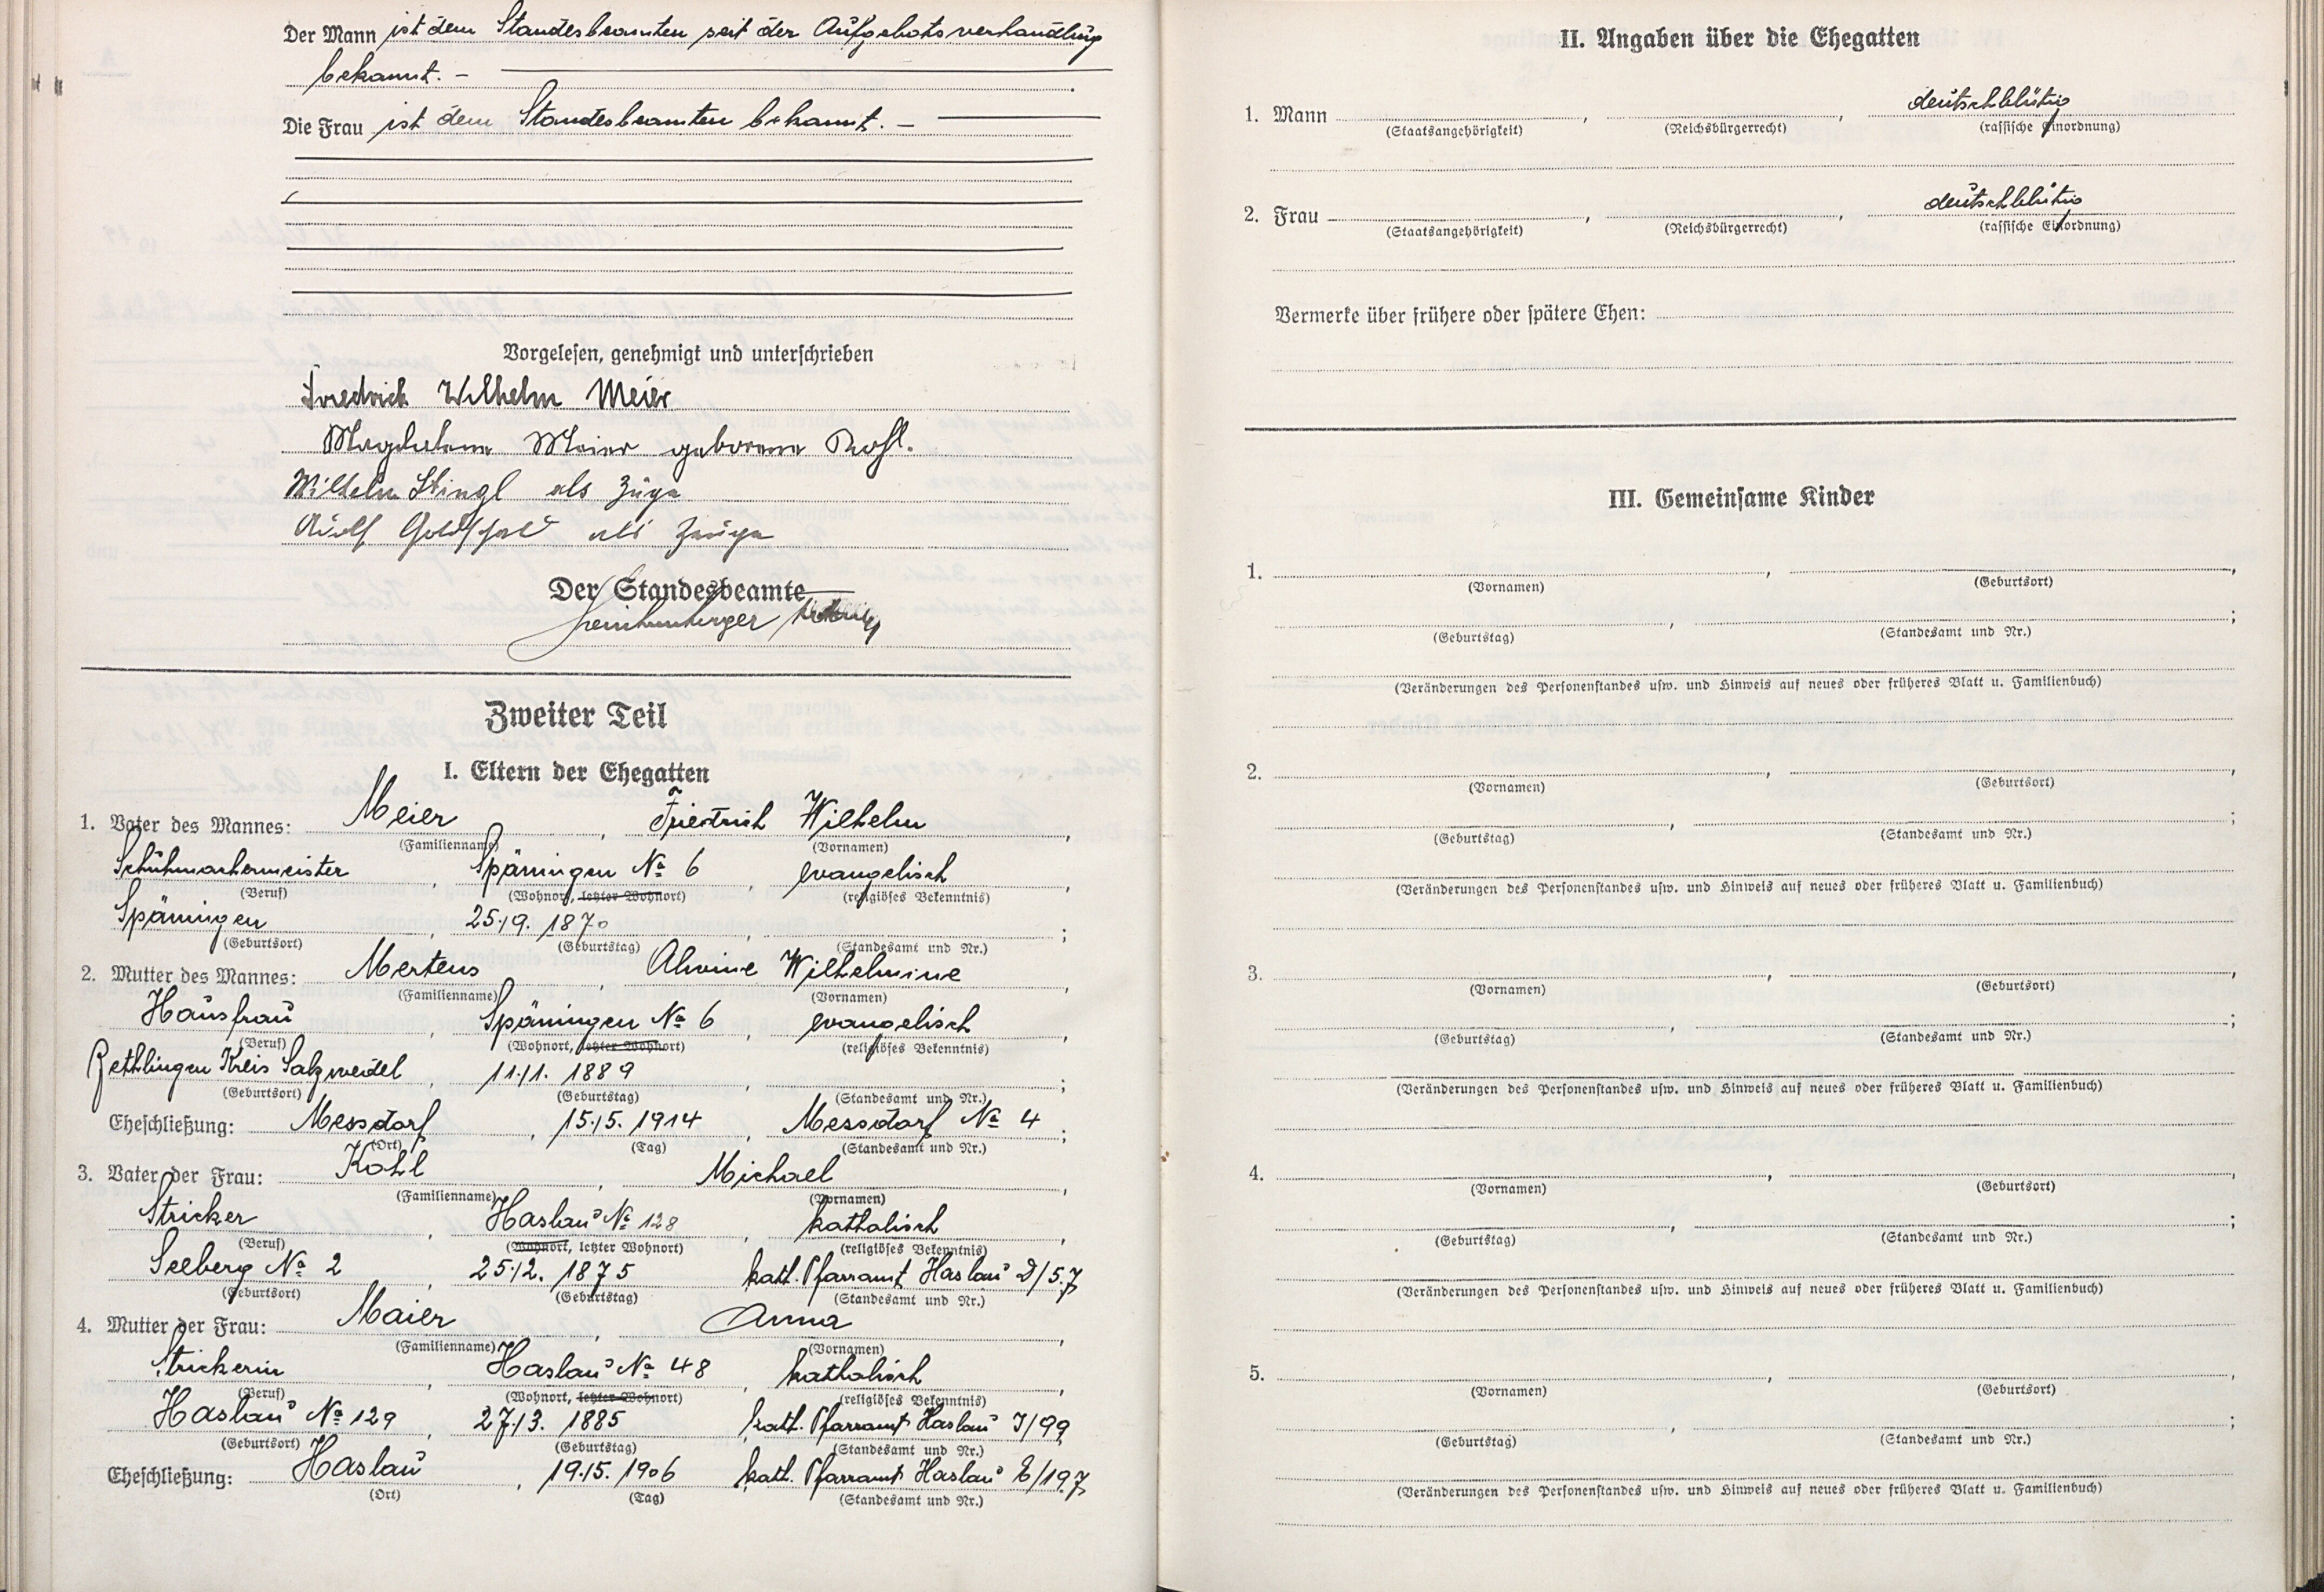 Der Mann ist dem Standesbeamten seit der Aufgebotsverhandlung
bekannt. —
Die Frau ist dem Standesbeamten bekannt. —
Vorgelesen, genehmigt und unterschrieben
Friedrich Wilhelm Meier
Magdalena Meier geborene Kohl.
Wilhelm Stingl als Zeuge
Adolf als Zeuge
Der Standesbeamte
Zweiter Teil
I. Eltern der Ehegatten
1. Vater des Mannes: Meier, Friedrich Wilhelm,
(Familienname) (Vornamen)
Schuhmachermeister, Späningen № 6, evangelisch,
(Beruf) (Wohnort, letzter Wohnort) (religiöses Bekenntnis)
Späningen, 25./9. 1870, ;
(Geburtsort) (Geburtstag) (Standesamt und Nr.)
2. Mutter des Mannes: Mertens, Alwine Wilhelmine,
(Familienname) (Vornamen)
Hausfrau, Späningen № 6, evangelisch,
(Beruf) (Wohnort, letzter Wohnort) (religiöses Bekenntnis)
Rethlingen Kreis Salzwedel, 11./1. 1889, ;
(Geburtsort) (Geburtstag) (Standesamt und Nr.)
Eheschließung: Messdorf, 15./5. 1914, Messdorf № 4;
(Ort) (Tag) (Standesamt und Nr.)
3. Vater der Frau: Kohl, Michael,
(Familienname) (Vornamen)
Stricker, Haslau № 128, katholisch,
(Beruf) (Wohnort, letzter Wohnort) (religiöses Bekenntnis)
Seeberg № 2, 25./2. 1875 kath. Pfarramt Haslau D/5.7
(Geburtsort) (Geburtstag) (Standesamt und Nr.)
4. Mutter der Frau: Maier, Anna,
(Familienname) (Vornamen)
Strickerin, Haslau № 48, katholisch,
(Beruf) (Wohnort, letzter Wohnort) (religiöses Bekenntnis)
Haslau № 129, 27./3. 1885 kath. Pfarramt Haslau J/99
(Geburtsort) (Geburtstag) (Standesamt und Nr.)
Eheschließung: Haslau, 19./5. 1906 kath. Pfarramt Haslau E/197
(Ort) (Tag) (Standesamt und Nr.)
II. Angaben über die Ehegatten
1. Mann , , deutschblütig
(Staatsangehörigkeit) (Reichsbürgerrecht) (rassische Einordnung)
2. Frau , , deutschblütig
(Staatsangehörigkeit) (Reichsbürgerrecht) (rassische Einordnung)
Vermerke über frühere oder spätere Ehen:
III. Gemeinsame Kinder
1. , ,
(Vornamen) (Geburtsort)
, ;
(Geburtstag) (Standesamt und Nr.)
(Veränderungen des Personenstandes usw. und Hinweis auf neues oder früheres Blatt u. Familienbuch)
2. , ,
(Vornamen) (Geburtsort)
, ;
(Geburtstag) (Standesamt und Nr.)
(Veränderungen des Personenstandes usw. und Hinweis auf neues oder früheres Blatt u. Familienbuch)
3. , ,
(Vornamen) (Geburtsort)
, ;
(Geburtstag) (Standesamt und Nr.)
(Veränderungen des Personenstandes usw. und Hinweis auf neues oder früheres Blatt u. Familienbuch)
4. , ,
(Vornamen) (Geburtsort)
, ;
(Geburtstag) (Standesamt und Nr.)
(Veränderungen des Personenstandes usw. und Hinweis auf neues oder früheres Blatt u. Familienbuch)
5. , ,
(Vornamen) (Geburtsort)
, ;
(Geburtstag) (Standesamt und Nr.)
(Veränderungen des Personenstandes usw. und Hinweis auf neues oder früheres Blatt u. Familienbuch)